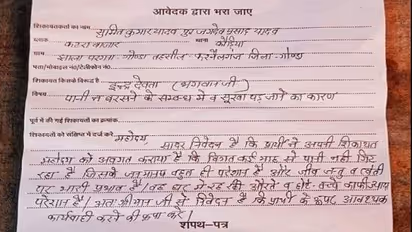 आवेदक द्वारा भरा जाए
शिकायतकर्ता का नाम सुमित कुमार यादव पुत्र जगदेव प्रसाद यादव
कटरा बाजार थाना कौड़िया
ग्राम झाला परगना-गोण्डा तहसील-करनैलगंज जिला-गोण्डा
शिकायत किसके विरूद्ध है इन्द्र देवता (भगवान जी)
विषय पानी न बरसने के सम्बन्ध में व सूखा पड़ जाने का कारण
पूर्व में की गई शिकायतों का क्रमांक
शिकायतों को संक्षिप्त में दर्ज करें महोदय,
सादर निवेदन है कि प्रार्थी ने अपनी शिकायत
महोदय को अवगत कराया है कि विगत कई माह से पानी नहीं गिर
रहा है जिससे जनमानस बहुत ही परेशान है और जीव जन्तु व खेती
पर भारी प्रभाव है। वह घर में रह रही औरते व छोटे बच्चे काफी ज्यादा
परेशान है। अतः श्रीमान जी से निवेदन है कि प्रार्थी के ऊपर आवश्यक
कार्यवाही करने की कृपा करें।
शपथ-पत्र